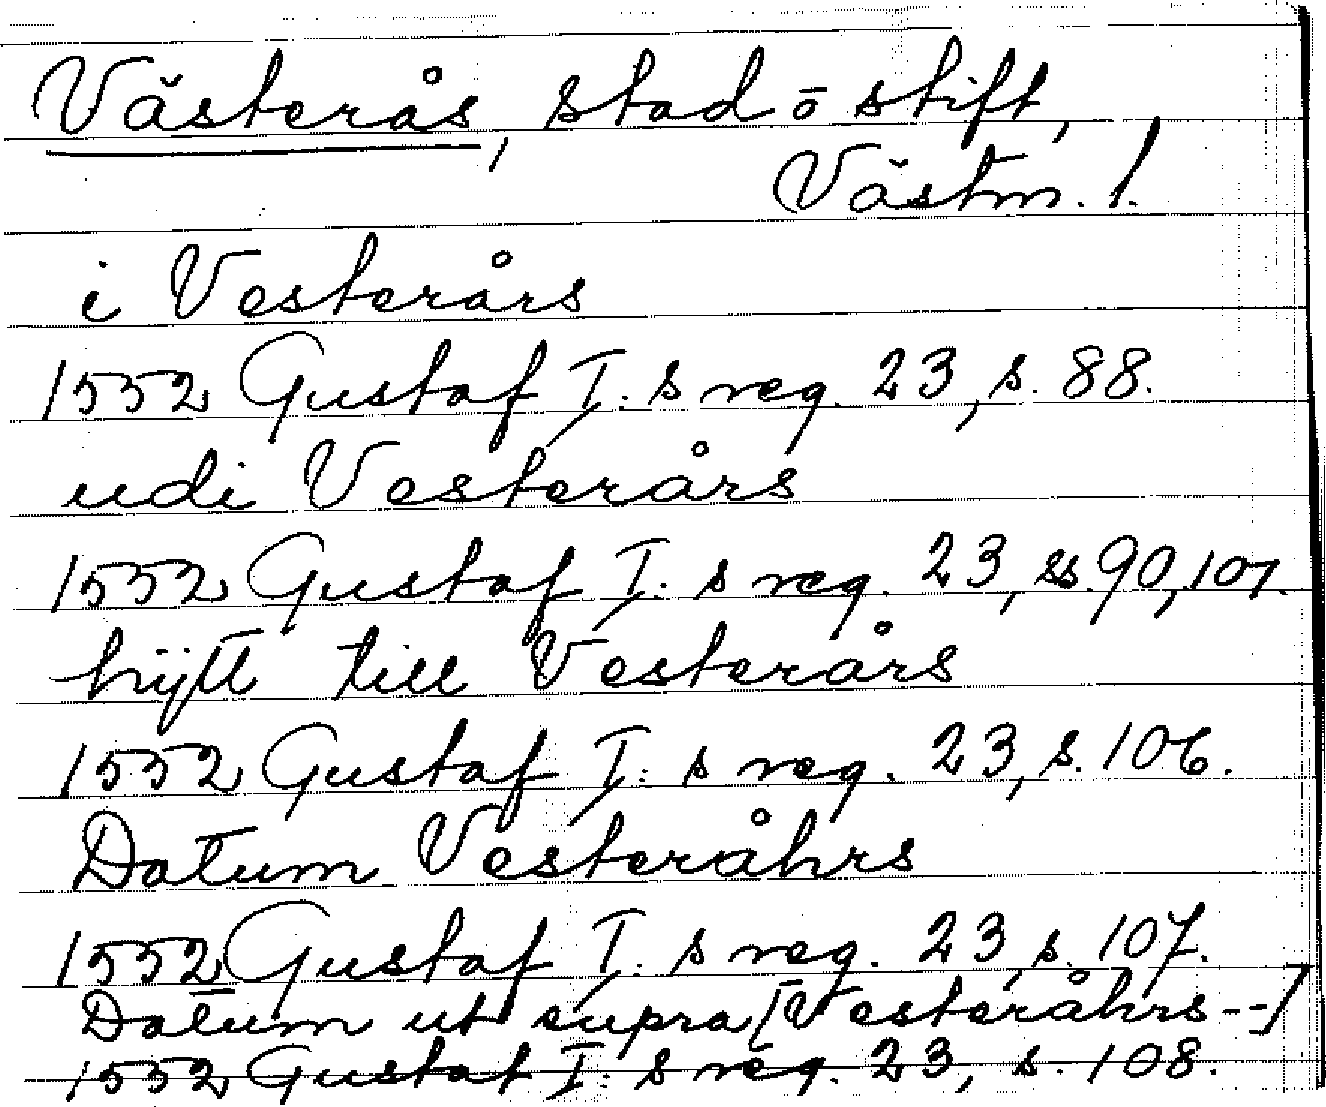 Västerås, stad o stift,
Västm. l.
i Vesterårs
1552 Gustaf I:s reg. 23, s. 88.
udi Vesterårs
1552 Gustaf I:s reg. 23, ss. 90, 107.
hijtt till Vesterårs
1552 Gustaf I:s reg. 23, s. 106.
Datum Vesteråhrs
1552 Gustaf I:s reg. 23, s. 107.
Datum ut supra [Vesteråhrs--]
1552 Gustaf I:s reg. 23, s. 108.